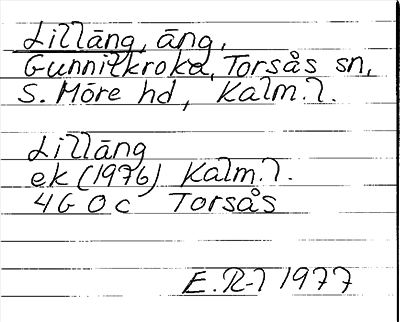 Lillāng, āng,
Gunnilkroka, Torsås sn,
S. Mōre hd, Kalm. l.
Lillāng
ek (1976) Kalm. l.
4G 0c Torsås
E. R-l 1977